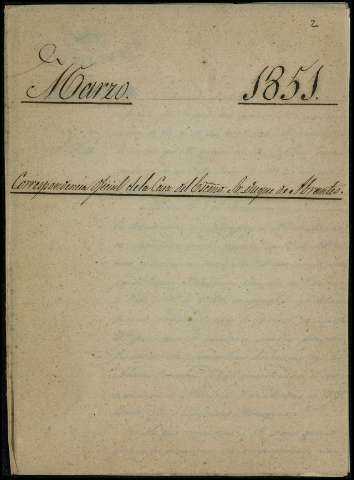 2
Marzo. 1851.
Correspondencia oficial de la Casa del Escmo. Sr. Duque de Abrantes.